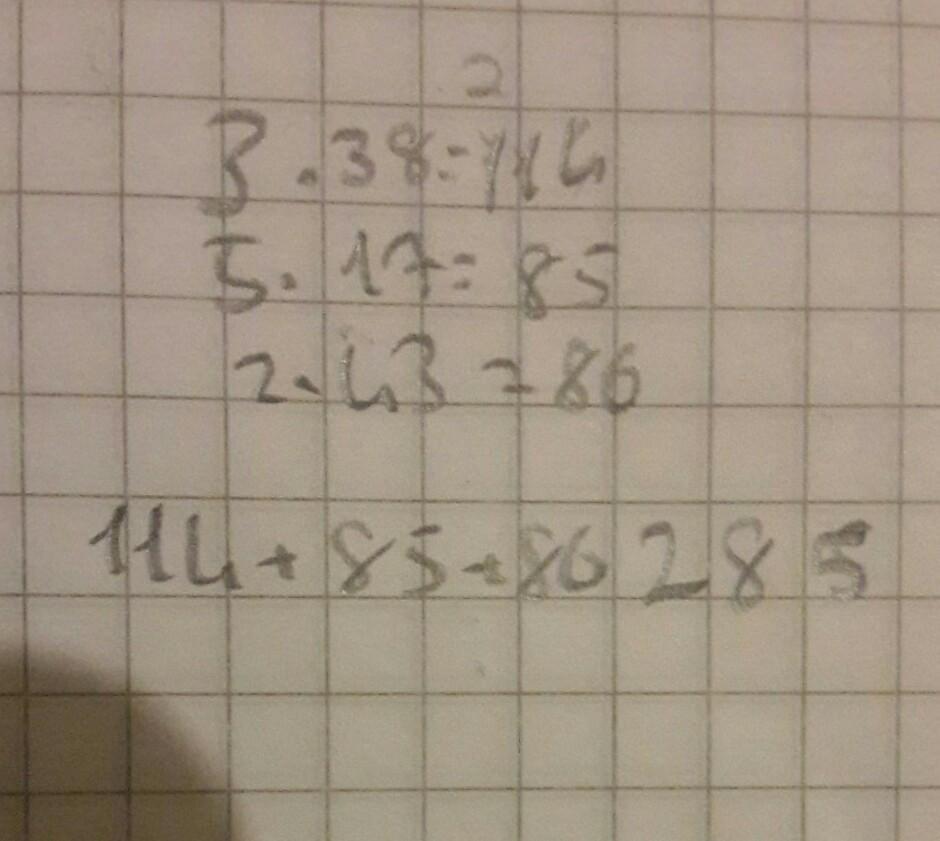 2
3·38=114
5·17=85
2·43=86
114+85+86 285